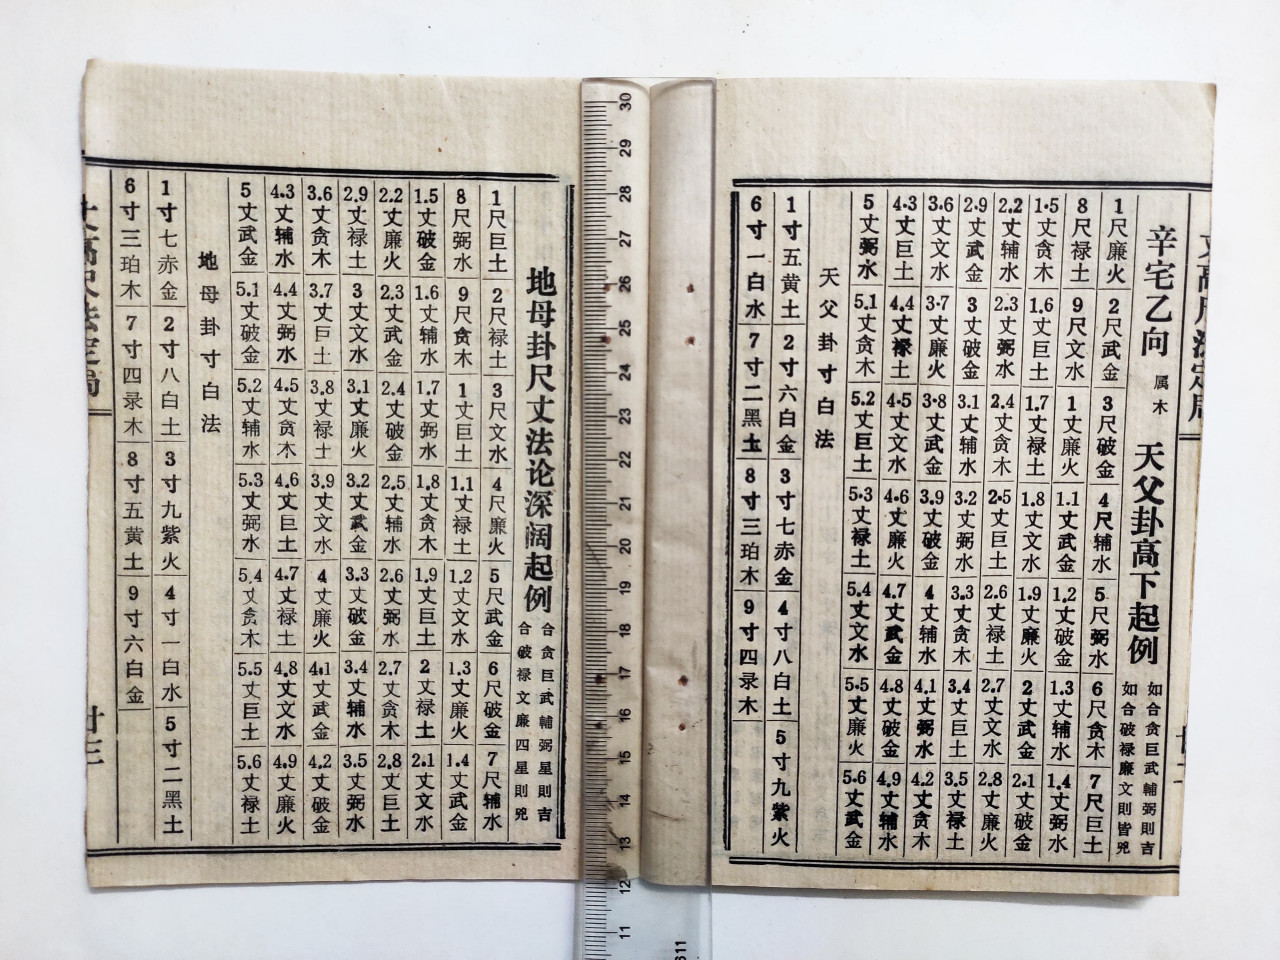 辛宅乙向 属木 天父卦高下起例
如合贪巨武輔弼則吉
如合破禄廉文則皆兇
1尺廉火 2尺武金 3尺破金 4尺辅水 5尺弼水 6尺贪木 7尺巨土
8尺禄土 9尺文水 1丈廉火 1.1丈武金 1.2丈破金 1.3丈辅水 1.4丈弼水
1·5丈贪木 1.6丈巨土 1.7丈禄土 1.8丈文水 1.9丈廉火 2丈武金 2.1丈破金
2.2丈辅水 2.3丈弼水 2.4丈贪木 2·5丈巨土 2.6丈禄土 2.7丈文水 2.8丈廉火
2·9丈武金 3丈破金 3.1丈辅水 3.2丈弼水 3.3丈贪木 3.4丈巨土 3.5丈禄土
3.6丈文水 3·7丈廉火 3·8丈武金 3.9丈破金 4丈辅水 4.1丈弼水 4.2丈贪木
4·3丈巨土 4.4丈禄土 4·5丈文水 4·6丈廉火 4.7丈武金 4.8丈破金 4.9丈辅水
5丈弼水 5.1丈贪木 5.2丈巨土 5·3丈禄土 5.4丈文水 5·5丈廉火 5.6丈武金
天父卦寸白法
1寸五黄土 2寸六白金 3寸七赤金 4寸八白土 5寸九紫火
6寸一白水 7寸二黑土 8寸三珀木 9寸四录木
地母卦尺丈法论深阔起例
合贪巨武輔弼星則吉
合破禄文廉四星則兇
1尺巨土 2尺禄土 3尺文水 4尺廉火 5尺武金 6尺破金 7尺辅水
8尺弼水 9尺贪木 1丈巨土 1.1丈禄土 1.2丈文水 1.3丈廉火 1.4丈武金
1.5丈破金 1.6丈辅水 1.7丈弼水 1.8丈贪木 1.9丈巨土 2丈禄土 2.1丈文水
2.2丈廉火 2.3丈武金 2.4丈破金 2.5丈辅水 2.6丈弼水 2.7丈贪木 2.8丈巨土
2.9丈禄土 3丈文水 3.1丈廉火 3.2丈武金 3.3丈破金 3.4丈辅水 3.5丈弼水
3.6丈贪木 3.7丈巨土 3.8丈禄土 3.9丈文水 4丈廉火 4.1丈武金 4.2丈破金
4.3丈辅水 4.4丈弼水 4.5丈贪木 4.6丈巨土 4.7丈禄土 4.8丈文水 4.9丈廉火
5丈武金 5.1丈破金 5.2丈辅水 5.3丈弼水 5.4丈贪木 5.5丈巨土 5.6丈禄土
地母卦寸白法
1寸七赤金 2寸八白土 3寸九紫火 4寸一白水 5寸二黑土
6寸三珀木 7寸四录木 8寸五黄土 9寸六白金
30
29
28
27
26
25
24
23
22
21
20
19
18
17
16
15
14
13
12
11